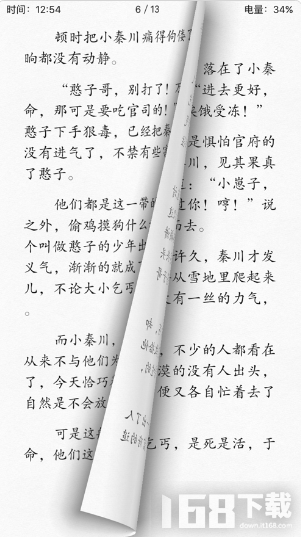 时间: 12:54 6 / 13 电量: 34%
顿时把小秦川痛得佝偻
晌都没有动静。 落在了小秦
“憨子哥，别打了！ “进去更好，
命，那可是要吃官司的！ 挨饿受冻！”
憨子下手狠毒，已经把 是惧怕官府的
没有进气了，不禁有些 川，见其果真
了憨子。 ：“小崽子，
他们都是这一带的 过你！哼！”说
之外，偷鸡摸狗什么 而去。
个叫做憨子的少年出 许久，秦川才发
义气，渐渐的就成 从雪地里爬起来
儿，不论大小乞丐 有一丝的力气，
。
而小秦川， 不少的人都看在
从来不与他们为 漠的没有出头，
了，今天恰巧 便又各自忙着去了
自然是不会放
可是这 乞丐，是死是活，于
命，他们这
168下载
down.it168.com